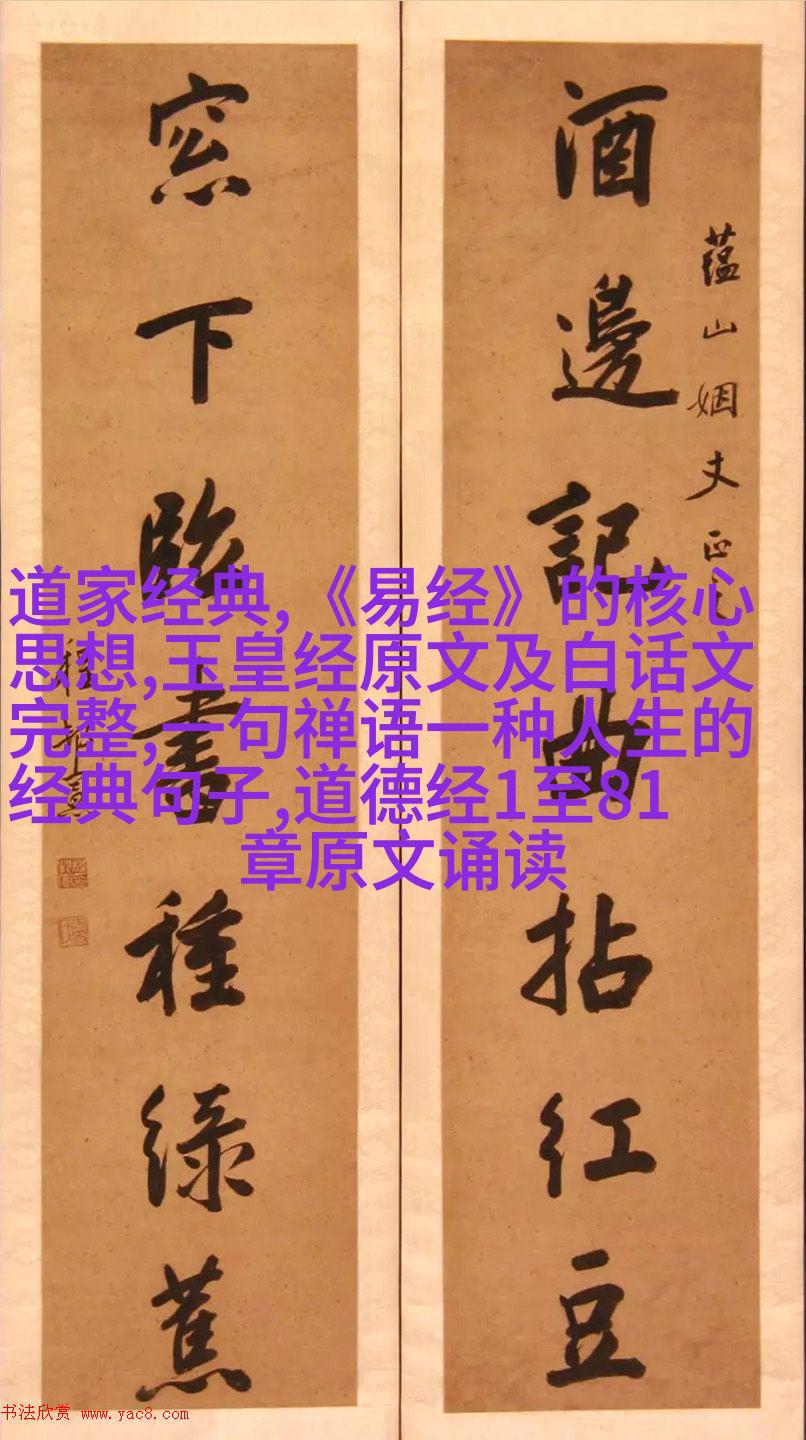 蘊山姻丈正之
酒邊記曲拈紅豆
窓下臨書種綠蕉
道家经典,《易经》的核心
思想,玉皇经原文及白话文
完整,一句禅语一种人生的
经典句子,道德经1至81
章原文诵读
书法欣赏 www.yac8.com